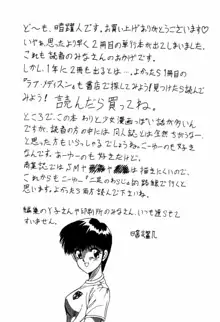 ど〜も、暗躍人です。お買い上げありがとうございます♡
いやぁ、思ったより早く2冊目の単行本が出てしまいました。
これも読者のみなさんのおかげです。
しかし、1年に2冊も出るとは…。よかったら1冊目の
『ラブ・ノディスン』も書店で探してみよう！見つけたら読んで
みよう！読んだら買ってね。
ところで、この本わりと少女漫画っぽい話が多いん
ですが、読者の方の中には同人誌とは全然ちがうなー、
と思った方もいらっしゃるでしょうね。こーゆーのも好き
なんです。あーゆーのも好きだけど。
商業誌ではSMや
これからもこーゆー"二足のわらじ"的路線で行くと
思いますが、よかったら両方読んで下さいね。
編集のとみさんや印刷所のみなさん、いつも遅れて
すいません。
暗躍人